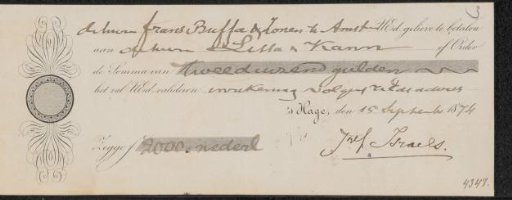 de heren Frans Buffa & Zonen te Amst Ued. gelieve te betalen
aan de heren Lissa & Kann of Order
de Somma van tweeduizend gulden
het zal UEd. valideren in rekening volgens advies
's Hage, den 15 September 1874
Zegge ƒ 2000. nederl
Jozef Israels.
4348.
3